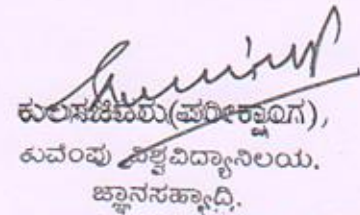 ಕುಲಸಚಿವರು(ಪರೀಕ್ಷಾಂಗ),
ಕುವೆಂಪು ವಿಶ್ವವಿದ್ಯಾನಿಲಯ.
ಜ್ಞಾನಸಹ್ಯಾದ್ರಿ.